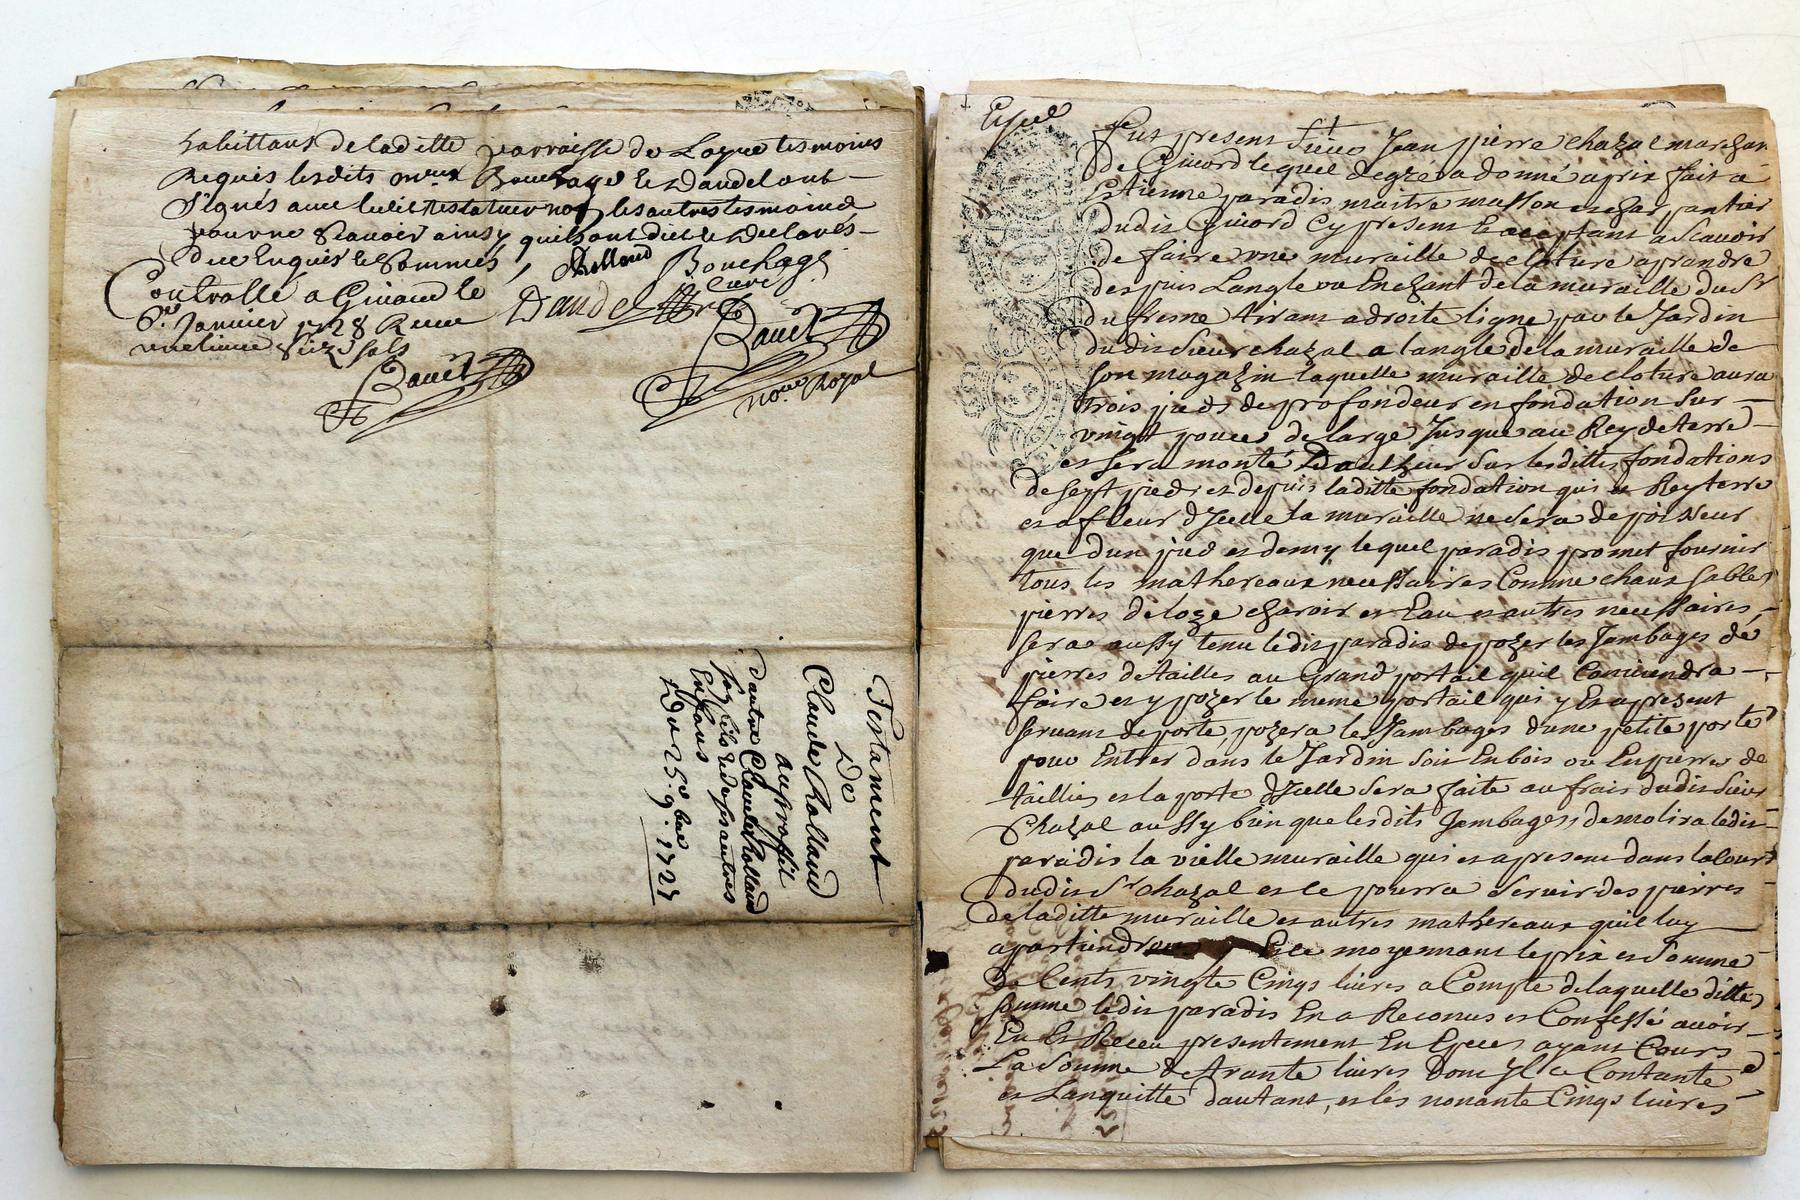 habittants de laditte parroisse de Loyre tesmoins
Requis lesdits Bouchage et Dandel ont
signés avec ledit testateur non les autres tesmoins
pour ne scavoir ainsy quils ont dit et declarés
duement Enquis et sommés, CRolland Bouchage
curé
Controllé a Givord le Dandel
Janvier 1728 Receu
une livre seize sols
Bauet
Bauet
no.re Royal
Testament
De
Claude Rolland
au proffit
dautre Claude Rolland
son fils et de ses autres
Enfans
Du 25e 9.bre 1727
Expel
Fut present Sieur Jean pierre chazal marchan
de Givord lequel degré a donné a prix fait a
Estienne paradis maitre masson et charpantier
dudit Givord Cy present et acceptant a Scavoir
de faire une muraille de cloture a prandre
despuis Langle ou Enchant de la muraille du Sr
du fresne tirant a droite ligne par le Jardin
dudit sieur chazal a langle de la muraille de
son magazin laquelle muraille de cloture aura
trois pieds de profondeur en fondation sur
vingt pouces de large Jusque au Rey de terre
et sera monté Dautheur sur lesdittes fondations
de sept pieds et depuis laditte fondation qui Rey terre
et a fleur dJcelle la muraille ne sera depoisseur
que dun pied et demy lequel paradis promet fournir
tous les mathereaux necessaires Comme chaux sable
pierres de loze charoir et Eau et autres necessaires
sera aussy tenu ledit paradis de pozer les Jambages de
pierres de tailles au Grand portail quil Conviendra
faire et y pozer le meme portail qui y Est a present
servant de porte, pozera les Jambages dune petite porte
pour Entrer dans le Jardin soit En bois ou En pierres de
tailles et la porte dJcelle sera faite au frais dudit sieur
Chazal aussy bien que lesdits Jambages, demolira ledit
paradis la vielle muraille qui est a present dans la Cour
dudit Sr chazal et ce pourra servir des pierres
de laditte muraille et autres mathereaux quil luy
apartiendron Et ce moyennant le prix et somme
de Cents vingte Cinqs livres a Compte de laquelle ditte
somme ledit paradis En a Reconus et Confessé avoir
Eu Et Receu presentement En Especes ayant Cours
La somme de trante livres Dont Jl ce Contante
et Lenquitte dautant, et les nonante Cinqs livres